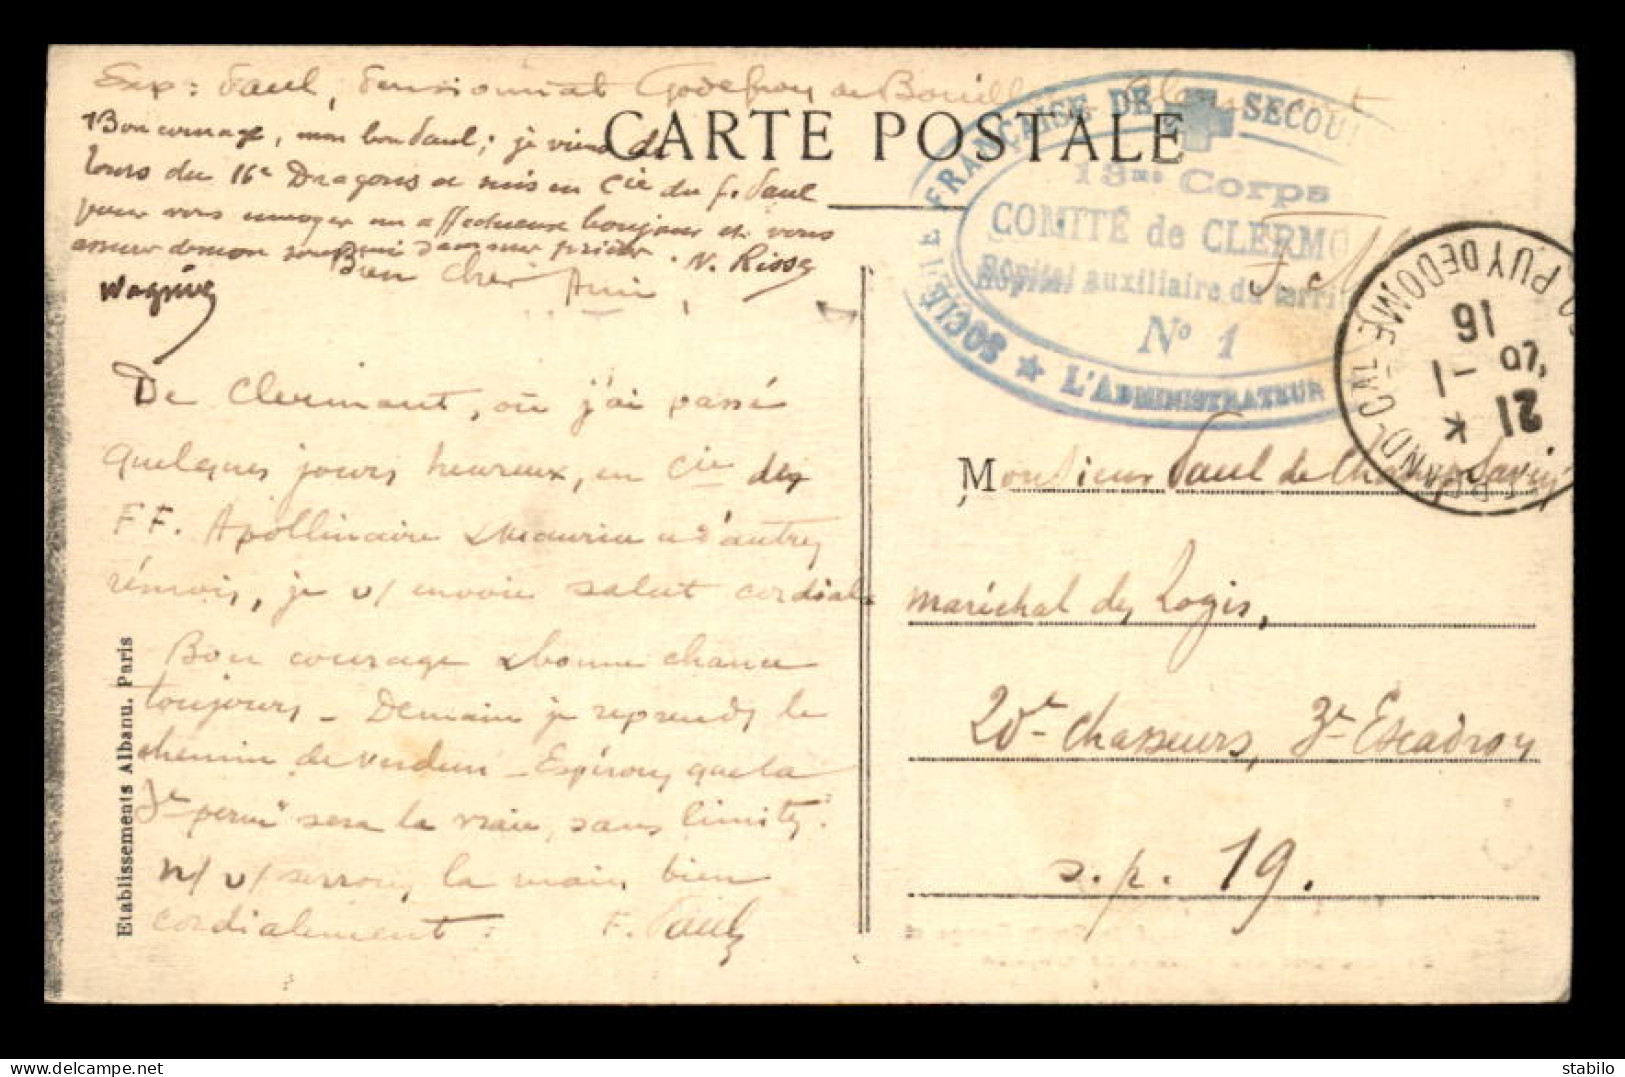 Exp : Paul, Pensionnat Godefroy de Bouillon Clermont
CARTE POSTALE
Bon courage, mon bon Paul ; je viens de
Tours du 16e Dragons et suis en Cie du f. Paul
pour vous envoyer un affectueux bonjour et vous
assurer de mon souvenir dans mes prières . N. Risse
Bien Cher Ami,
De Clermont, où j'ai passé
quelques jours heureux, en Cie des
FF. Apollinaire & Maurice et d'autres
rémois, je v/ envoie salut cordial.
Bon courage & bonne chance
toujours – Demain je reprends le
chemin de Verdun – Espérons que la
3e perm sera la vraie, sans limites.
n/ v/ serrons la main bien
cordialement : F. Paul
Etablissements Albanu. Paris
SOCIÉTÉ FRANÇAISE DE SECOU
13me Corps
COMITÉ de CLERMO
Hôpital auxiliaire du territ
No 1
L'ADMINISTRATEUR
F. M
PUY DE DOME
21 -1 16
Monsieur Paul de Champ Savin
maréchal des Logis,
20e Chasseurs, 3e Escadron
s.p. 19.
stabilo